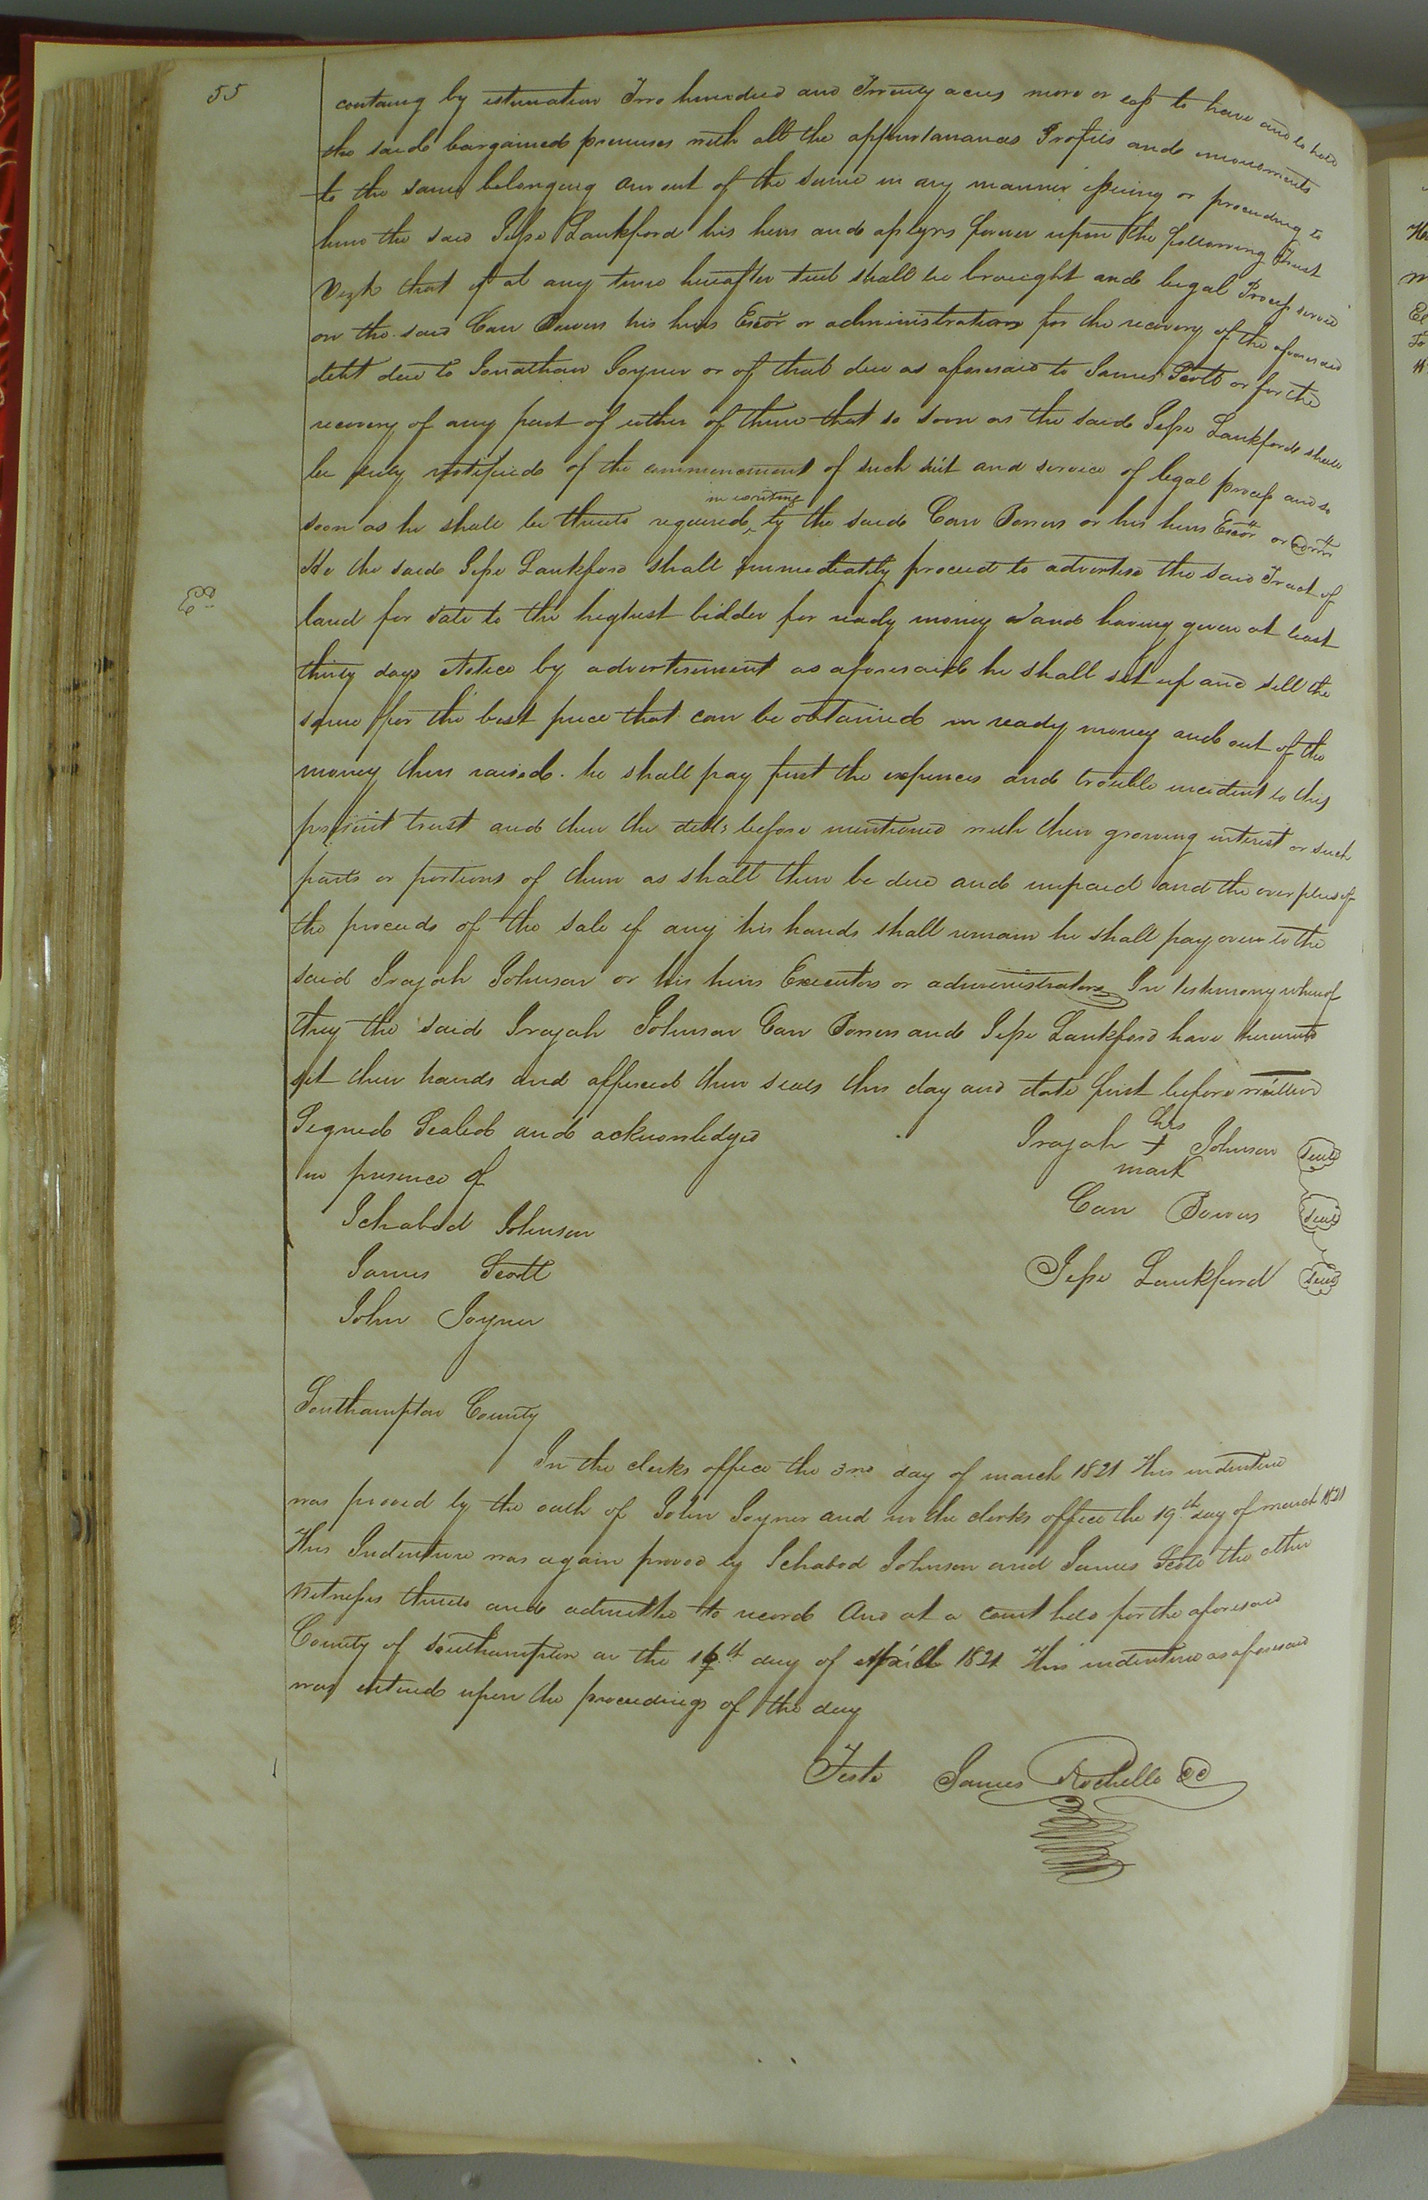 55
containg by estimation Two hundred and Twenty acres more or less to have and to hold
the said bargained premises with all the appurtanances Profits and emoluments
to the same belonging and out of the same in any manner issuing or proceeding to
him the said Jesse Lankford his heirs and assigns forever upon the following Trust
that if at any time hereafter suit shall be brought and legal Process served
on the said Carr Bowers his heirs Excor or administrators for the recovery of the aforesaid
debt due to Jonathan Joyner or of that due as aforesaid to James Scott or for the
recovery of any part of either of them that so soon as the said Jesse Lankford shall
be duly notified of the commencement of such suit and service of legal process and so
in writing
soon as he shall be thereto required by the said Carr Bowers or his heirs Excor or admrs
He the said Jesse Lankford shall immediately proceed to advertise the said Tract of
land for sale to the highest bidder for ready money and having given at least
thirty days Notice by advertisement as aforesaid he shall set up and sell the
same for the best price that can be obtained in ready money and out of the
money then raised he shall pay first the expences and trouble incident to this
present trust and then the debts before mentioned with their growing interest or such
parts or portions of them as shall then be due and unpaid and the overplus of
the proceeds of the sale if any his hands shall remain he shall pay over to the
said Irajah Johnson or his heirs Executors or administrators In testimony whereof
they the said Irajah Johnson Carr Bowers and Jesse Lankford have hereunto
set their hands and affixed their seals this day and date first before written
Signed Sealed and acknowledged
in presence of
Ichabod Johnson
James Scott
John Joyner
his
Irajah + Johnson seal
mark
Carr Bowers seal
Jesse Lankford seal
Southampton County
In the clerks office the 3rd day of march 1821 This indenture
was proved by the oath of John Joyner and in the clerks office the 19th day of march 1821
This Indenture was again proved by Ichabod Johnson and James Scott the other
Witnesses thereto and admitted to record And at a court held for the aforesaid
County of Southampton on the 16th day of April 1821 This indenture as aforesaid
was entered upon the proceedings of the day
Teste James Rochelle CC